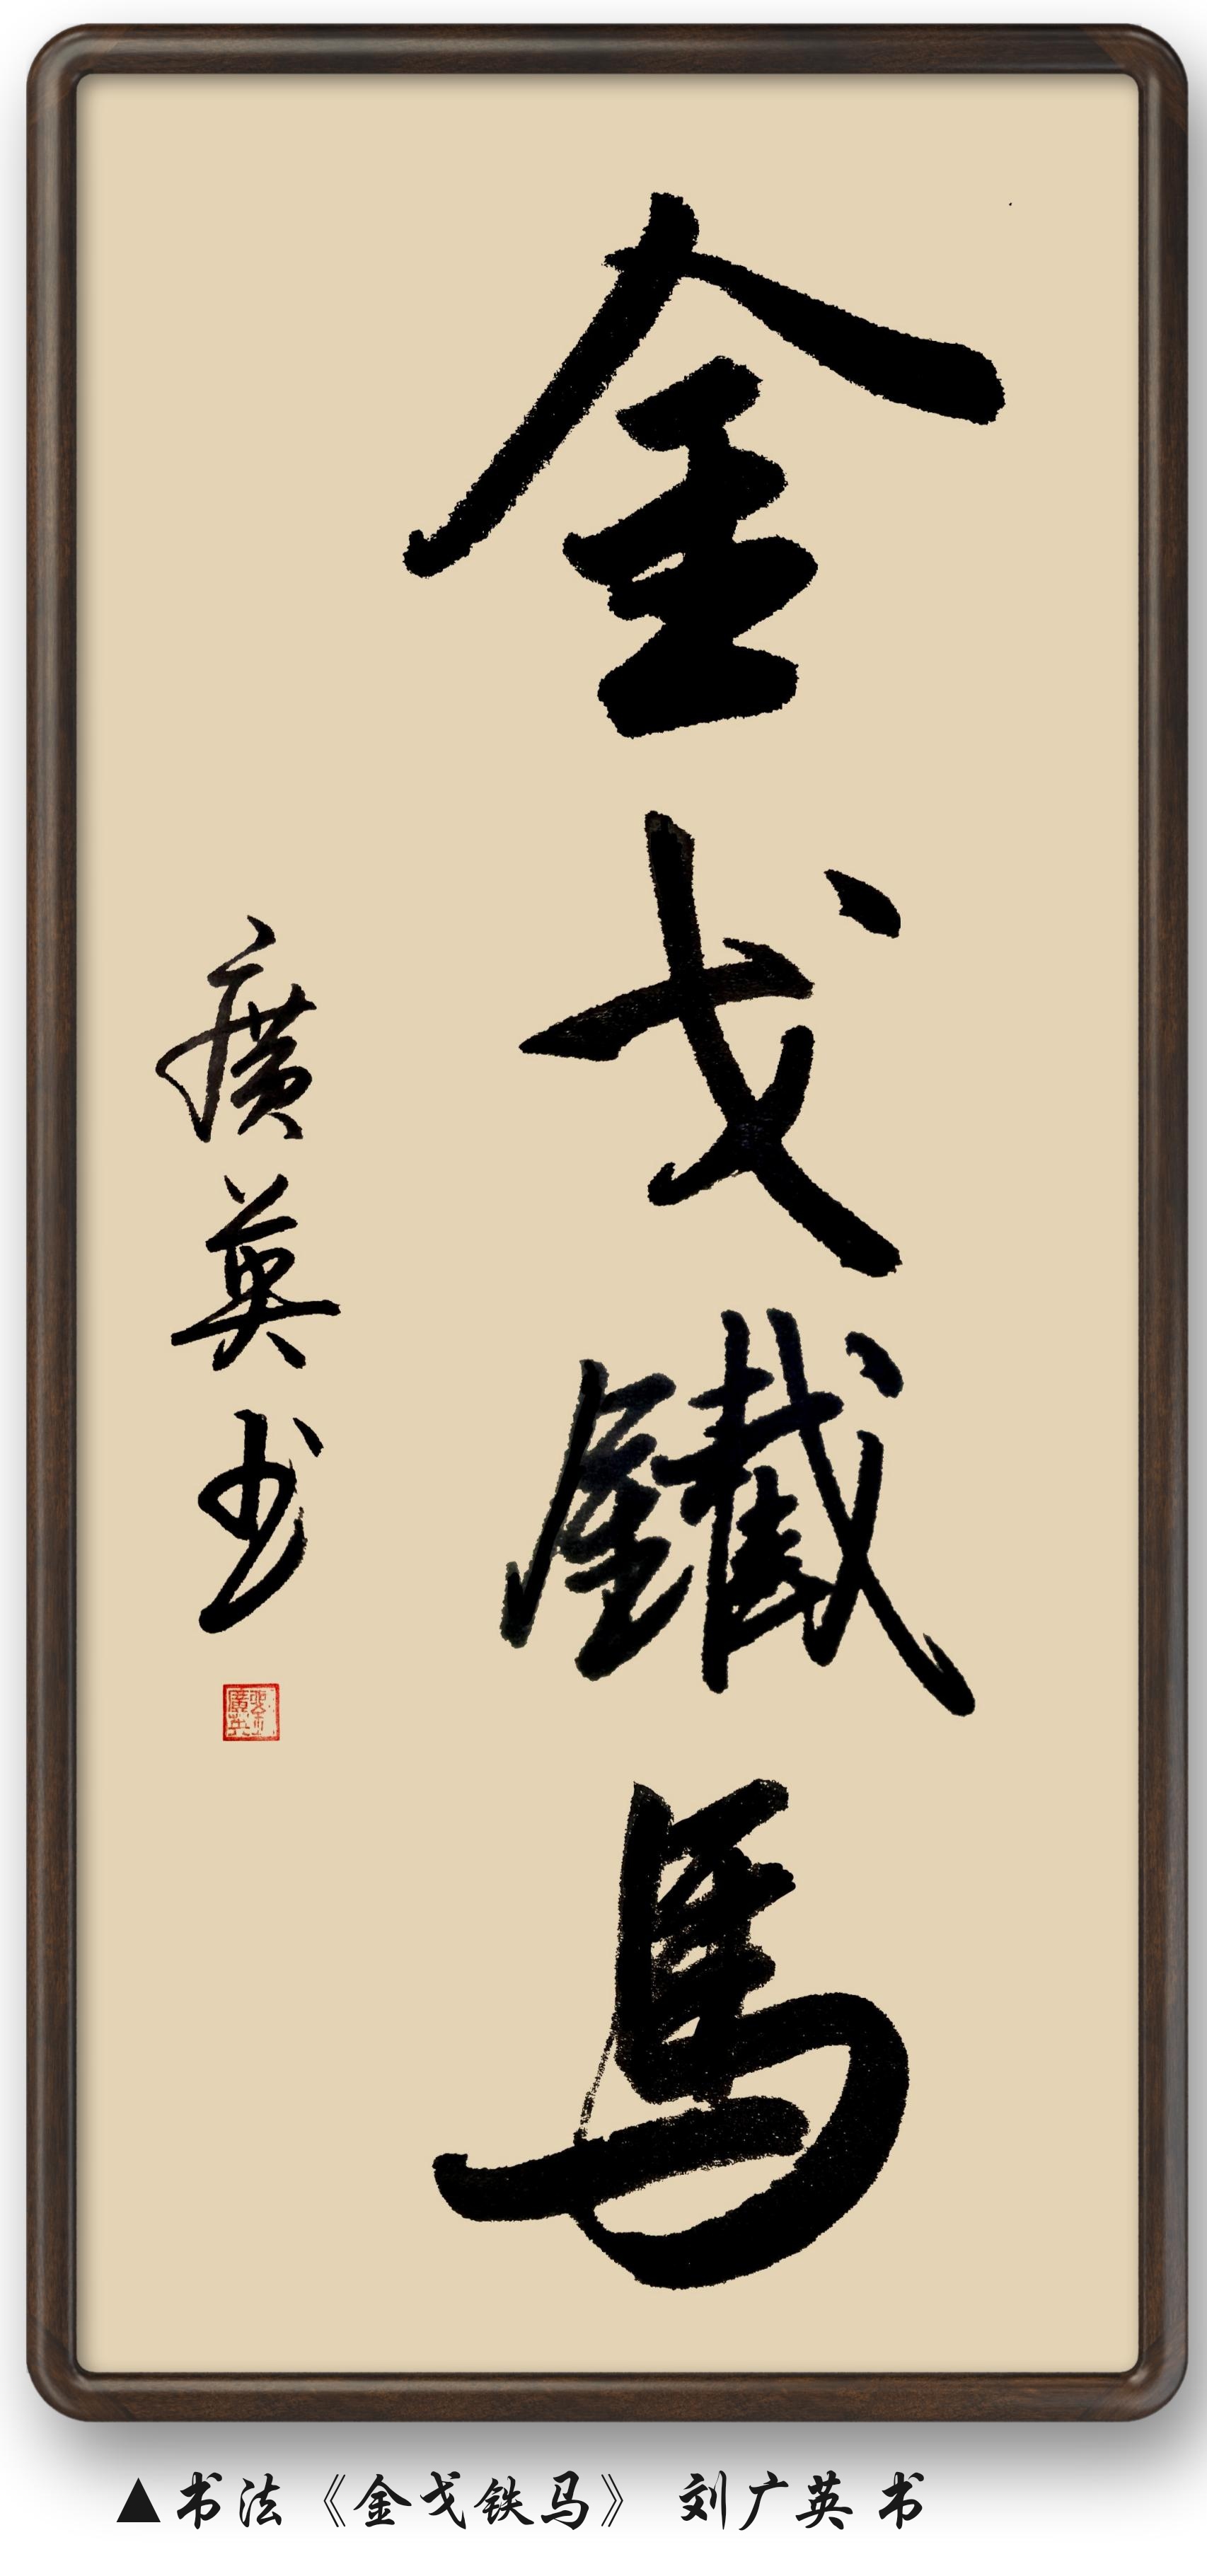 金戈鐵馬
廣英书
▲书法《金戈铁马》 刘广英 书